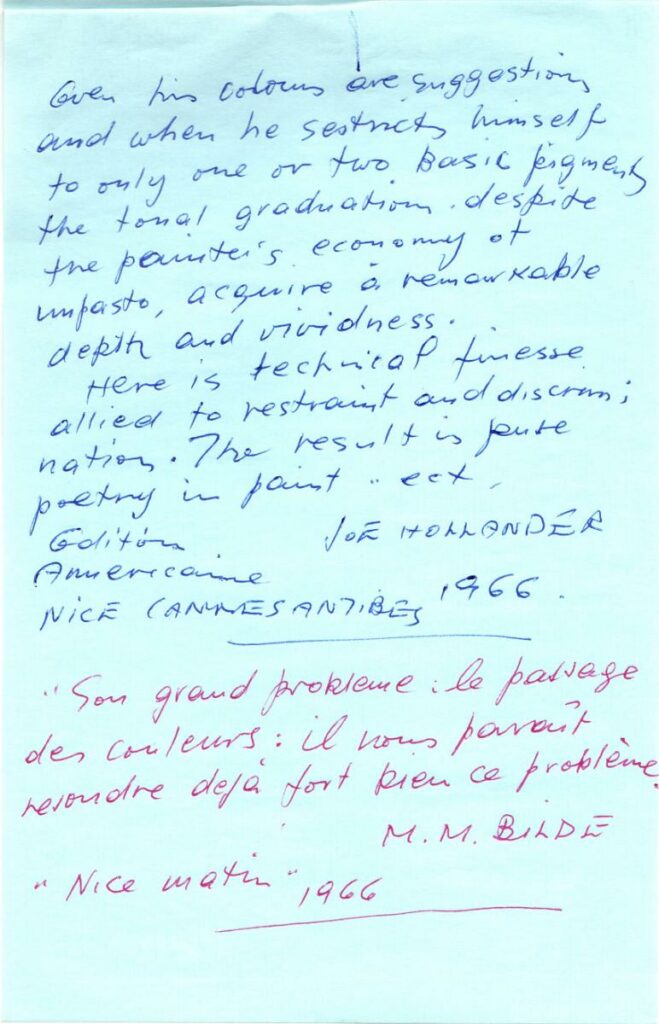 Even his colours are suggestions
and when he sestricts himself
to only one or two basic pigments
the tonal graduation. despite
the painter's economy of
impasto, acquire a remarkable
depth and vividness.
Here is technical finesse
allied to restraint and discrimi
nation. The result is pure
poetry in paint .. ect.
Edition JOE HOLLANDER
Americaine
NICE CANNES ANTIBES 1966.
"Son grand probleme : le passage
des couleurs : il nous paraît
resoudre dejà fort bien ce problème.
M. M. BILDE
"Nice matin" 1966